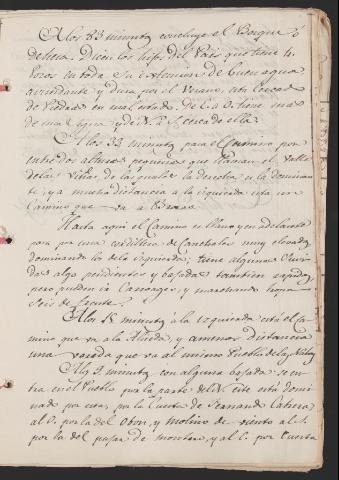 A los 83 minutos concluye el Bosque ó
dehesa. Dicen los hijos del Pais que tiene 4
Pozos en toda su extension de buen agua
abundante y dura por el Verano, con Cercas
de Piedra en mal estado. de E. a O. tiene mas
de una legua y de N. a S. cerca de ella.
A los 32 minutos para el Camino por
entre dos alturas pequeñas que forman el Valle
de las Viñas, de las cuales la derecha es la dominan
te, y a mucha distancia a la izquierda esta un
Camino que va a
Hasta aqui el Camino es llano y en adelante
pasa por una cordillera de Canchales muy elevada
dominando los de la izquierda; tiene algunas subi
das algo pendientes y bajadas tambien rapidas,
pero pueden ir Carruages, y marchando
seis de frente.
A los 18 minutos á la izquierda está el Ca
mino que va a la Aliseda, y a menor distancia
una vereda que va al mismo Pueblo de las
A los 9 minutos con alguna bajada se en
tra en el Pueblo por la parte del N. este está domi
nado por esta, por la Cuesta de Fernando Cabrera
al O. por la del Obon, y molino de viento al S.
por la del pajar de montero, y al E. por Cuesta